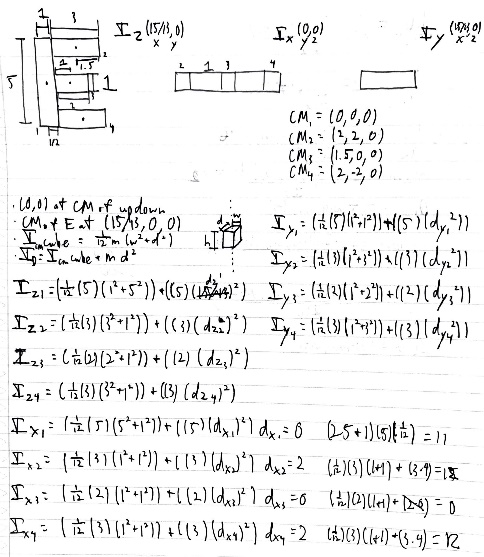 1 3 I_z (15/13, 0) I_x (0,0) I_y (15/13, 0)
x y y z x z
5 1 1.5 2 1 3 2 4 1 1/2
2 1 3 4
CM₁ = (0, 0, 0)
CM₂ = (2, 2, 0)
CM₃ = (1.5, 0, 0)
CM₄ = (2, -2, 0)
· (0,0) at CM of updown
· CM of E at (15/13, 0, 0)
· I_cmcube = 1/12 m (w² + d²)
· I_D = I_cmcube + m d²
d w h
I_z1 = (1/12 (5) (1² + 5²)) + ((5) (d_z1)²)
I_z2 = (1/12 (3) (3² + 1²)) + ((3) (d_z2)²)
I_z3 = (1/12 (2) (2² + 1²)) + ((2) (d_z3)²)
I_z4 = (1/12 (3) (3² + 1²)) + ((3) (d_z4)²)
I_y₁ = (1/12 (5) (1² + 1²)) + ((5) (d_y₁²))
I_y₂ = (1/12 (3) (1² + 3²)) + ((3) (d_y₂²))
I_y₃ = (1/12 (2) (1² + 2²)) + ((2) (d_y₃²))
I_y₄ = (1/12 (3) (1² + 3²)) + ((3) (d_y₄²))
I_x₁ = (1/12 (5) (5² + 1²)) + ((5) (d_x₁)²) d_x₁ = 0 (25+1)(5)(1/12) = 11
I_x₂ = (1/12 (3) (1² + 1²)) + ((3) (d_x2)²) d_x2 = 2 (1/12)(3)(1+1) + (3·4) = 12
I_x₃ = (1/12 (2) (1² + 1²)) + ((2) (d_x3)²) d_x3 = 0 (1/12)(2)(1+1) + (2·0) = 0
I_x4 = (1/12 (3) (1² + 1²)) + ((3) (d_x4)²) d_x4 = 2 (1/12)(3)(1+1) + (3·4) = 12